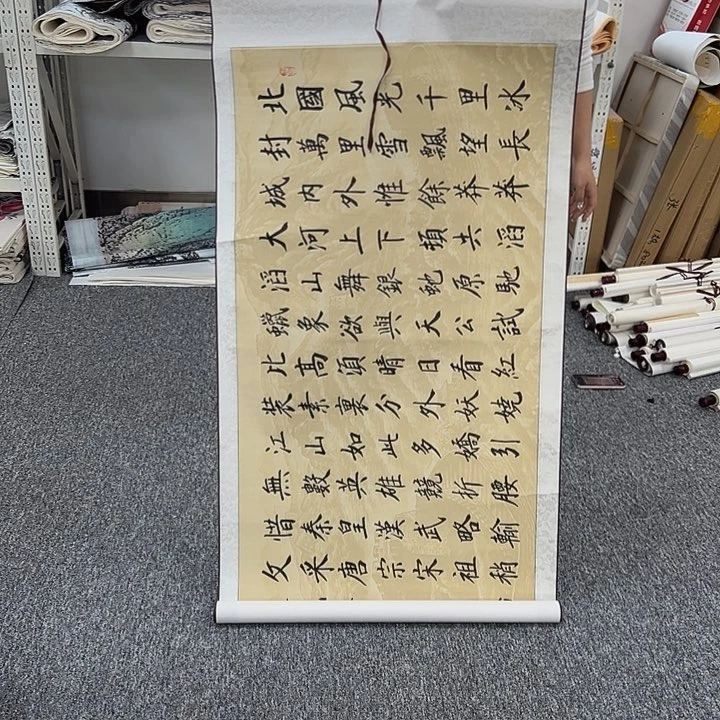 北國風光千里冰
封萬里雪飄望長
城内外惟餘莽莽
大河上下頓共滔
滔山舞銀蛇原馳
蠟象欲與天公試
比高須晴日看紅
裝素裹分外妖嬈
江山如此多嬌引
無數英雄競折腰
惜秦皇漢武略輸
文采唐宗宋祖稍